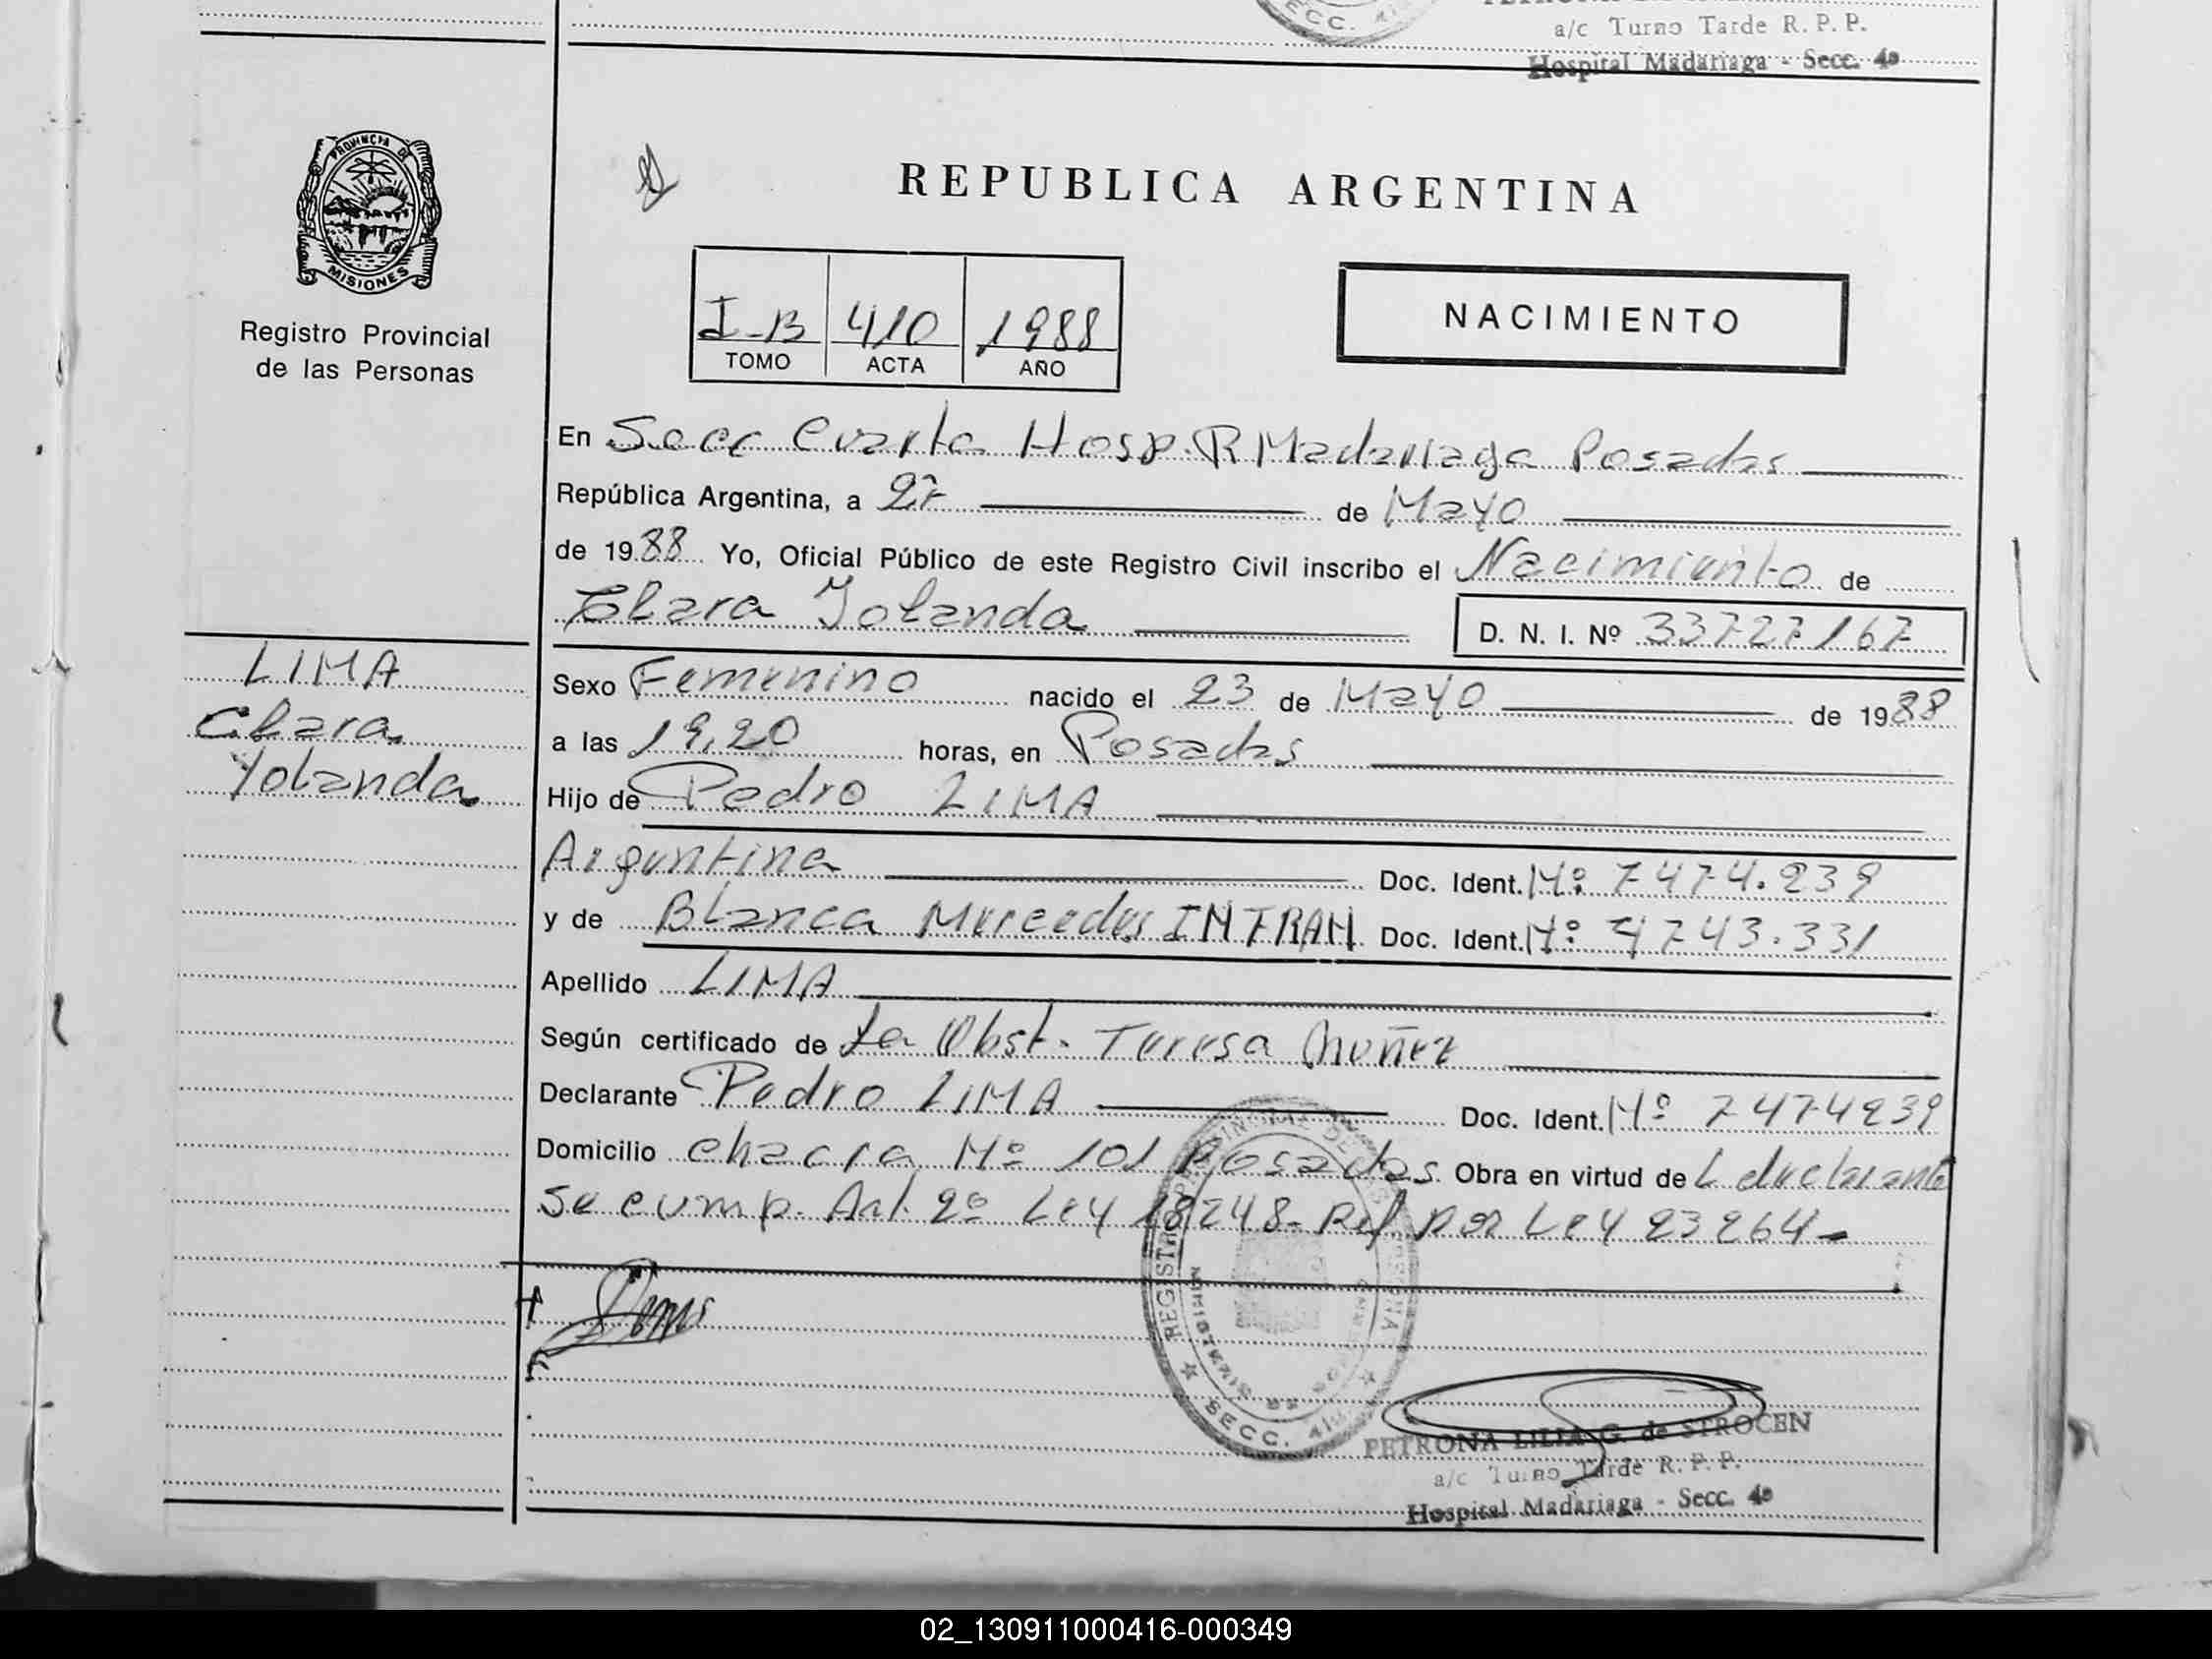 a/c Turno Tarde R. P. P.
Hospital Madariaga - Secc. 4a
PROVINCIA DE
MISIONES
Registro Provincial
de las Personas
REPUBLICA ARGENTINA
I-B 410 1988
TOMO ACTA AÑO
NACIMIENTO
En Secc Cuarta Hosp. R Madariaga Posadas
República Argentina, a 27 de Mayo
de 1988 Yo, Oficial Público de este Registro Civil inscribo el Nacimiento de
Clara Yolanda
D. N. I. Nº 33727167
LIMA
Clara
Yolanda
Sexo Femenino nacido el 23 de Mayo de 1988
a las 19,20 horas, en Posadas
Hijo de Pedro LIMA
Argentina Doc. Ident. Nº 7474.239
y de Blanca Mercedes Doc. Ident. Nº 4743.331
Apellido LIMA
Según certificado de La Obst. Teresa Nuñez
Declarante Pedro LIMA Doc. Ident. Nº 7474239
Domicilio chacra Nº 101 Posadas Obra en virtud de L declarante
Se cump. Art. 2º Ley 18248- Ref por Ley 23264-
SECC.
PETRONA LILIA G. de STROCEN
a/c Turno Tarde R. P. P.
Hospital Madariaga - Secc. 4a
02_130911000416-000349